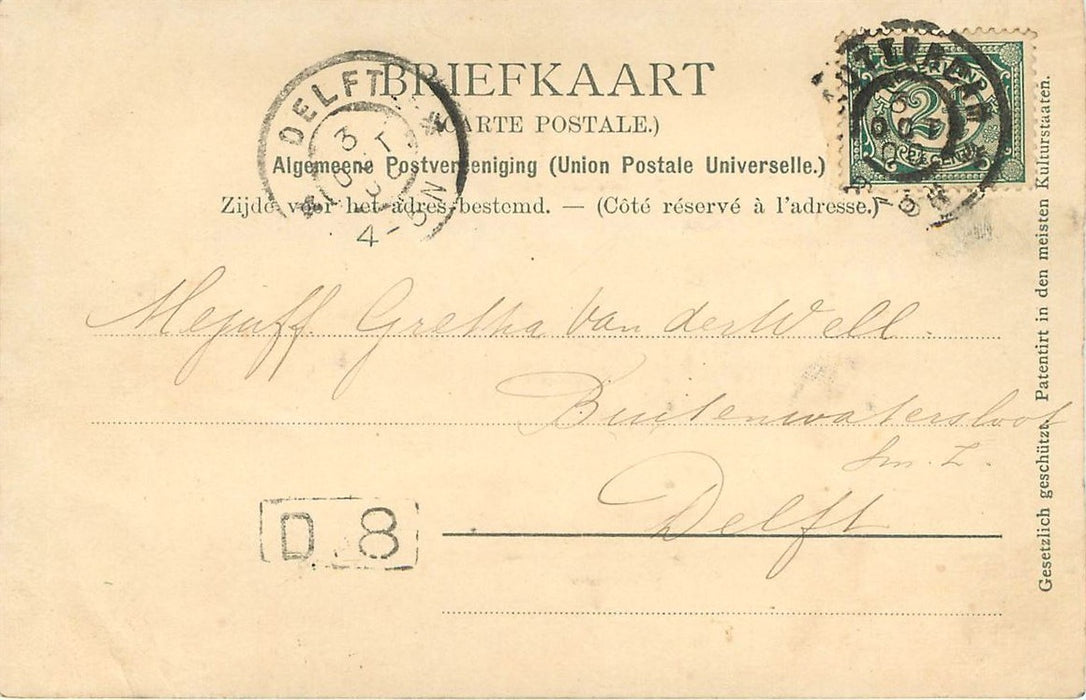 BRIEFKAART
(CARTE POSTALE.)
Algemeene Postvereeniging (Union Postale Universelle.)
Zijde voor het adres bestemd. — (Côté réservé à l'adresse.)
DELFT
3
4-5N
ROTTERDAM
NEDERLAND
2½
2½ CENT
Mejuff. Gretha van der Well.
Buitenwatersloot
Delft
D 8
Gesetzlich geschützt. Patentirt in den meisten Kulturstaaten.